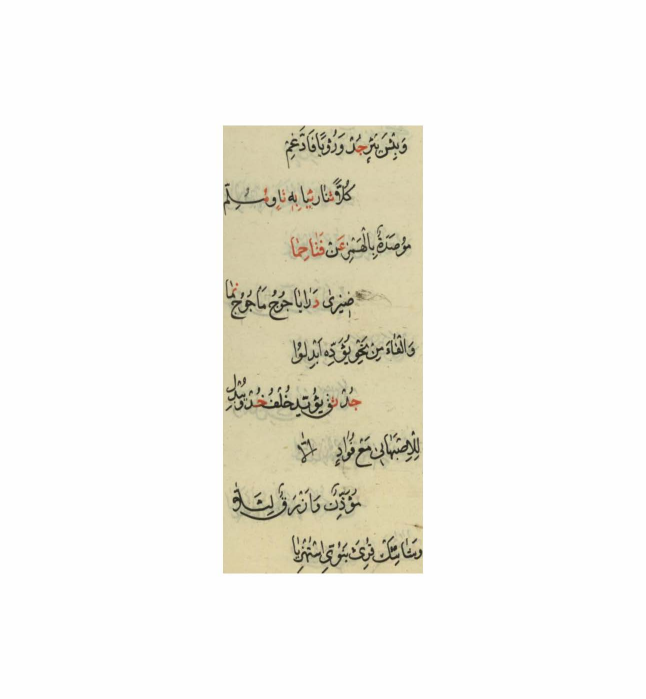 وَبِئْسَ بِئْرٍ جُدْ وَرُؤْيَا فَادَّغِمْ
كُلاًّ ثَنَا رِئْيًا بِهِ ثَاوٍ مُلِمّ
مُؤْصَدَةٌ بِالْهَمْزِ عَنْ فَتًا حِمَا
ضِيزَى دَرَا يَاجُوجُ مَاجُوجُ نَمَا
وَالْفَاءَ مِنْ نَحْوِ يُؤَدِّهِ ابْدِلُوا
جُدْ ثِقْ يُؤَيِّدُ خُلْفُ خُذْ وَيُبْدَلُ
لِلْاِصْبَهَانِي مَعْ فُؤَادٍ اِلَّا
مُؤَذِّنٌ وَاَزْرَقٌ لِيَلَّا
وَشَانِئَكْ قُرِئْ نُبَوِّي اسْتُهْزِيَا